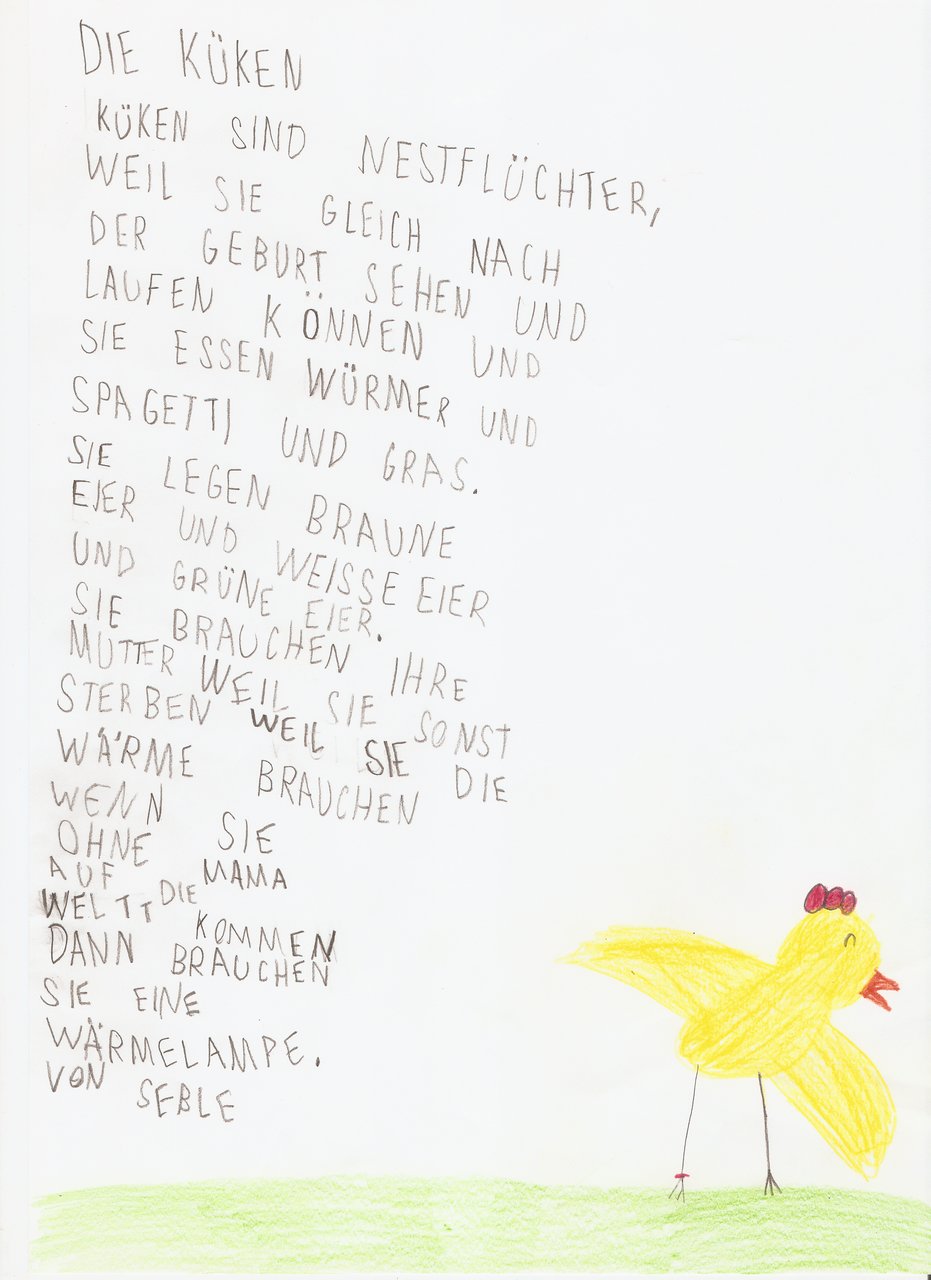 DIE KÜKEN
KÜKEN SIND NESTFLÜCHTER,
WEIL SIE GLEICH NACH
DER GEBURT SEHEN UND
LAUFEN KÖNNEN UND
SIE ESSEN WÜRMER UND
SPAGETTI UND GRAS.
SIE LEGEN BRAUNE
EIER UND WEISSE EIER
UND GRÜNE EIER.
SIE BRAUCHEN IHRE
MUTTER WEIL SIE SONST
STERBEN WEIL SIE DIE
WÄRME BRAUCHEN
WENN SIE
OHNE MAMA
AUF DIE
WELTT KOMMEN
DANN BRAUCHEN
SIE EINE
WÄRMELAMPE.
VON SEBLE